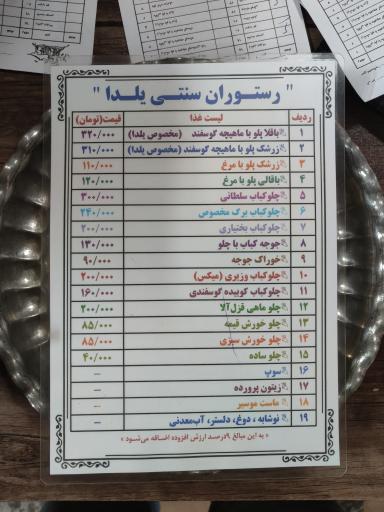 " رستوران سنتی یلدا "
ردیف لیست غذا قیمت(تومان)
۱ باقلا پلو با ماهیچه گوسفند (مخصوص یلدا) ۳۲۰/۰۰۰
۲ زرشک پلو با ماهیچه گوسفند (مخصوص یلدا) ۳۱۰/۰۰۰
۳ زرشک پلو با مرغ ۱۱۰/۰۰۰
۴ باقالی پلو با مرغ ۱۲۰/۰۰۰
۵ چلوکباب سلطانی ۳۰۰/۰۰۰
۶ چلوکباب برگ مخصوص ۲۴۰/۰۰۰
۷ چلوکباب بختیاری ۲۰۰/۰۰۰
۸ جوجه کباب با چلو ۱۳۰/۰۰۰
۹ خوراک جوجه ۹۰/۰۰۰
۱۰ چلوکباب وزیری (میکس) ۲۰۰/۰۰۰
۱۱ چلوکباب کوبیده گوسفندی ۱۶۰/۰۰۰
۱۲ چلو ماهی قزل‌آلا ۲۰۰/۰۰۰
۱۳ چلو خورش قیمه ۸۵/۰۰۰
۱۴ چلو خورش سبزی ۸۵/۰۰۰
۱۵ چلو ساده ۴۰/۰۰۰
۱۶ سوپ –
۱۷ زیتون پرورده –
۱۸ ماست موسیر –
۱۹ نوشابه ، دوغ، دلستر، آب‌معدنی –
« به این مبالغ ۹درصد ارزش افزوده اضافه می‌شود »